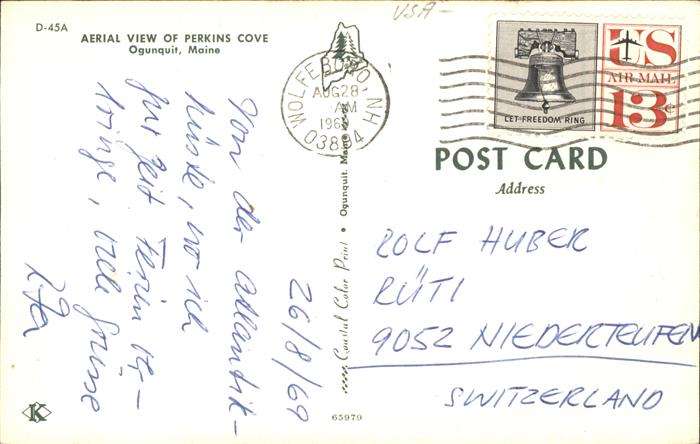 USA-
D-45A
AERIAL VIEW OF PERKINS COVE
Ogunquit, Maine
WOLFEBORO, NH
AUG 28
AM
03894
LET FREEDOM RING
US
AIR MAIL
13¢
POST CARD
Address
Coastal Color Print • Ogunquit, Maine
Von der Atlantik-
küste, wo ich
zur Zeit Ferien ver-
bringe, viele Grüsse
26/8/69
ROLF HUBER
RÜTI
9052 NIEDERTEUFEN
SWITZERLAND
K
65979